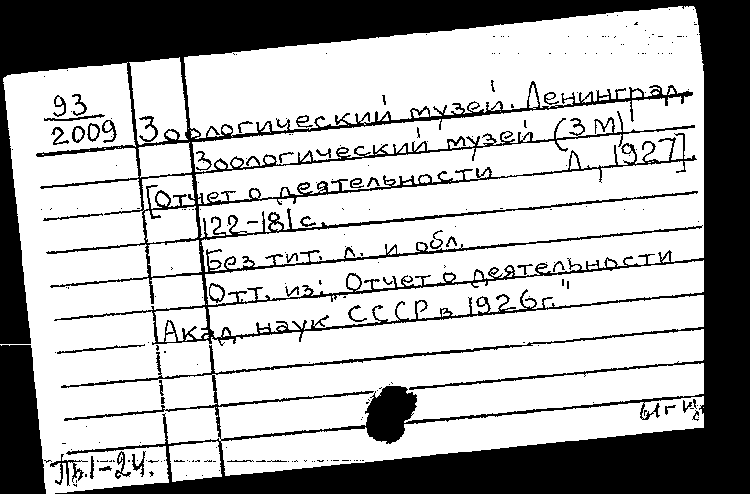 93
2009
Зоологический музей. Ленинград.
Зоологический музей (ЗМ).
[Отчет о деятельности Л., 1927].
122-181 с.
Без тит. л. и обл.
Отт. из: „Отчет о деятельности
Акад. наук СССР в 1926 г."
Пр.1-24.